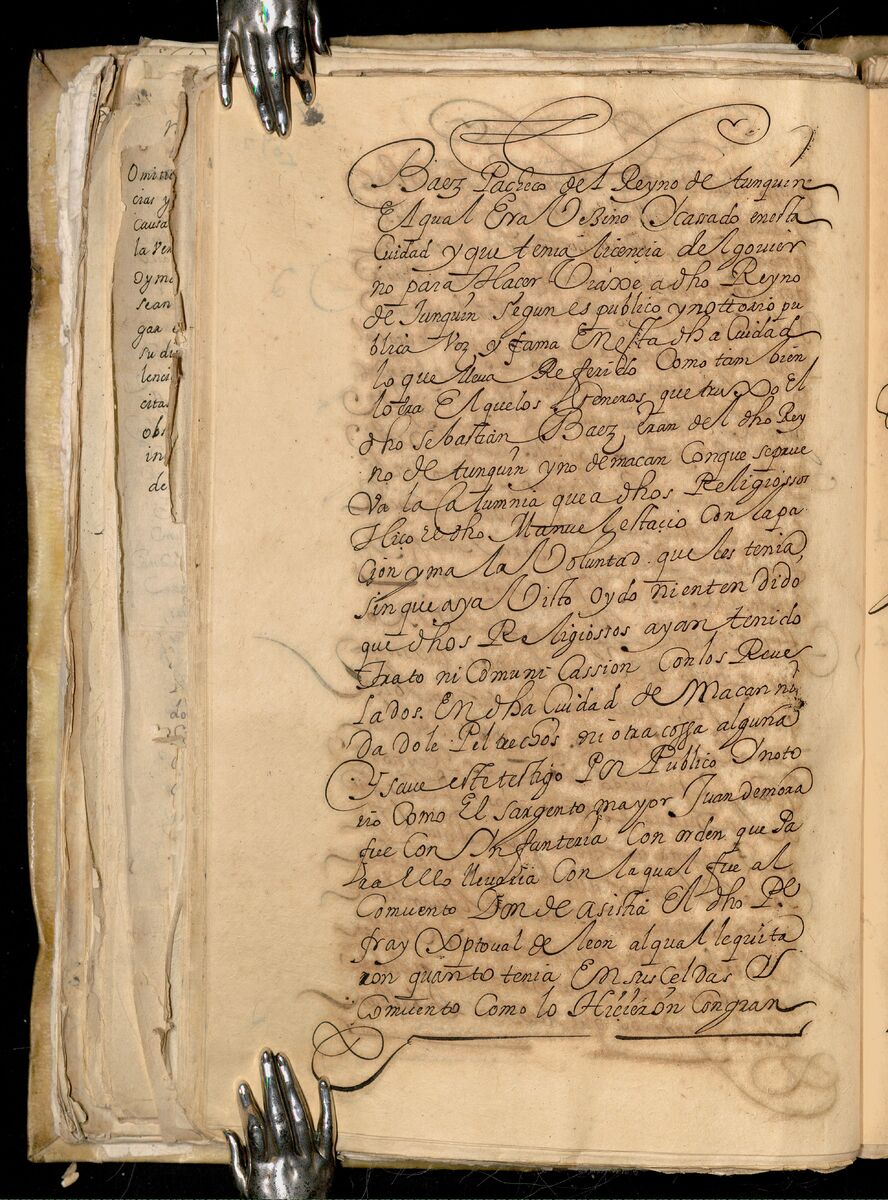 Omitie
cias y
Causa
la Ven
Oyme
sean
gar e
su di
lenci
citas
obs
in
de
Baez Pacheco del Reyno de tunquin
El qual Era Vesino Ycassado enesta
Cuidad y que tenia licencia del gouier
no para Hacer Viaxe, a dho Reyno
de Tunquin Segun es publico y nottorio pu
blica Voz, y fama En esta dha Cuidad
lo que lleva Referido Como tambien
lo era El quelos Xeneros, que truxo El
dho sebastian Baez, Eran del dho Rey
no de tunquin y no de macan Conque seprue
va la Calumnia que a dhos Religiossos
Hico el dho Manuel estacio Con la pa
çion y mala Voluntad que les tenia,
sin que aya Visto oydo ni entendido
que dhos Religiossos ayan tenido
trato ni Comunicassion Con los Reue
lados. En dha Cuidad de Macan ni
dadole Peltrechos ni otra cossa alguna
Y saue este testigo Por Publico Ynoto
rio Como El sargento mayor Juan demora
fue Con Ynfanteria Con orden que Pa
ra Ello lleuaria Con la qual fue al
Comuento de asistia El dho Pe
fray Xptoual de leon al qual le quita
ron quanto tenia En sus Celdas Y
Comuento Como lo Hicieron Con gran